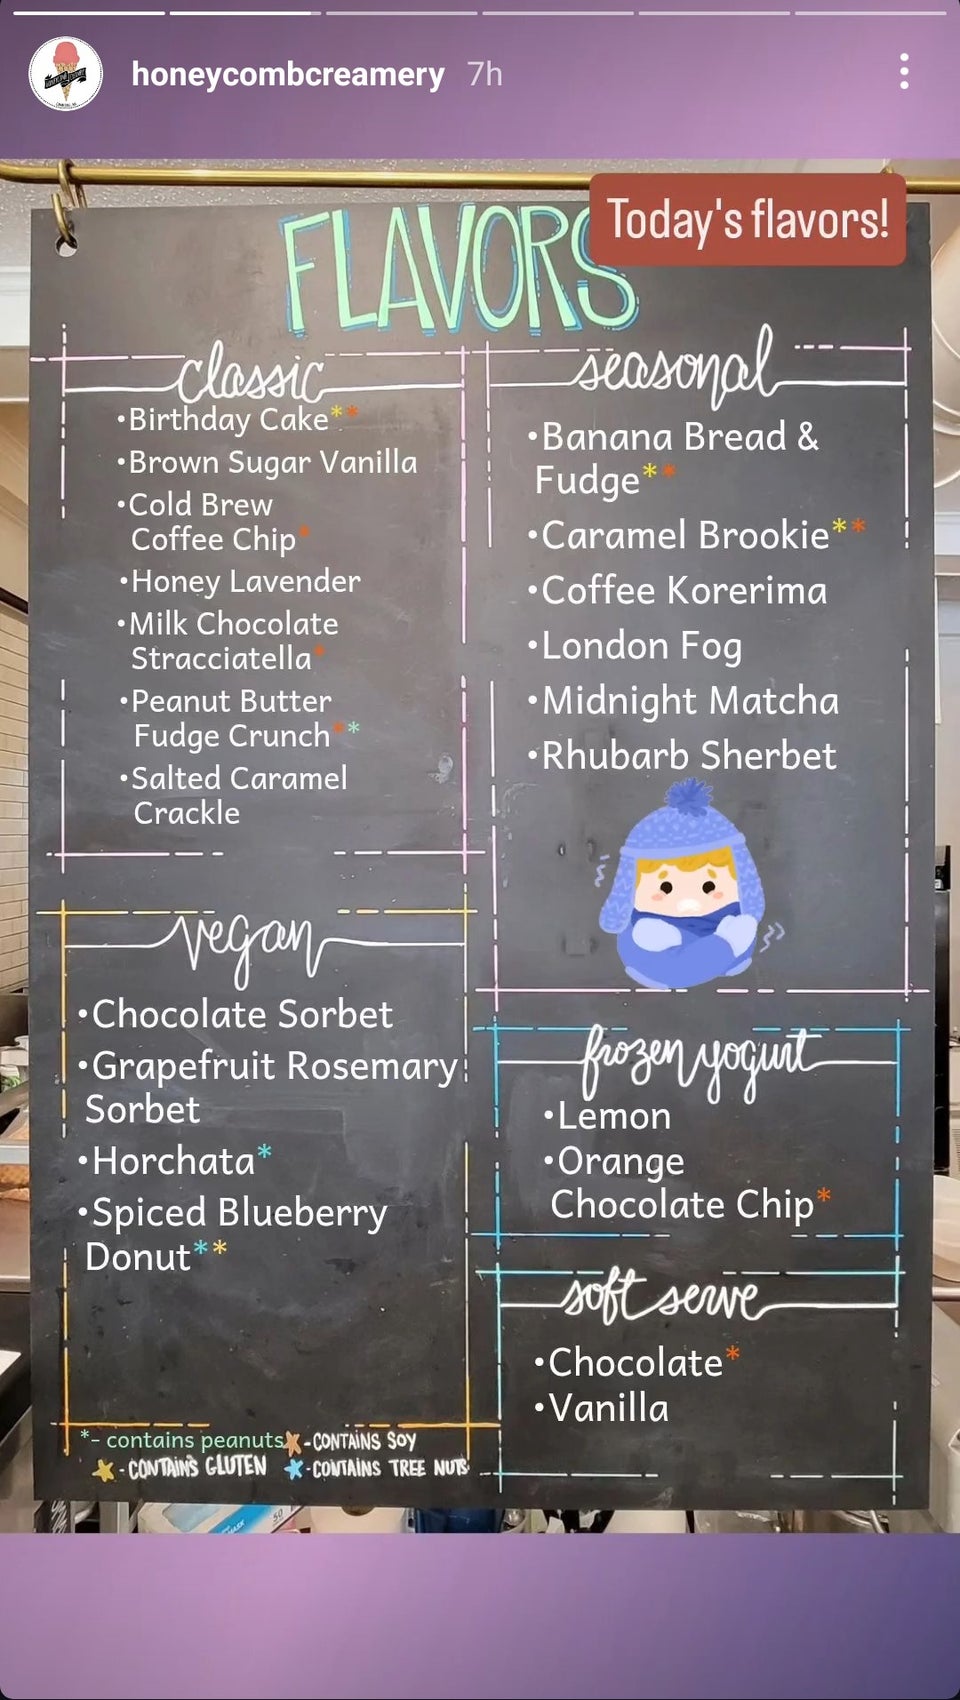 honeycombcreamery 7h
Today's flavors!
FLAVORS
classic
•Birthday Cake**
•Brown Sugar Vanilla
•Cold Brew
Coffee Chip*
•Honey Lavender
•Milk Chocolate
Stracciatella*
•Peanut Butter
Fudge Crunch**
•Salted Caramel
Crackle
seasonal
•Banana Bread &
Fudge**
•Caramel Brookie**
•Coffee Korerima
•London Fog
•Midnight Matcha
•Rhubarb Sherbet
vegan
•Chocolate Sorbet
•Grapefruit Rosemary
Sorbet
•Horchata*
•Spiced Blueberry
Donut**
frozen yogurt
•Lemon
•Orange
Chocolate Chip*
soft serve
•Chocolate*
•Vanilla
*- contains peanuts
-CONTAINS SOY
-CONTAINS GLUTEN
-CONTAINS TREE NUTS